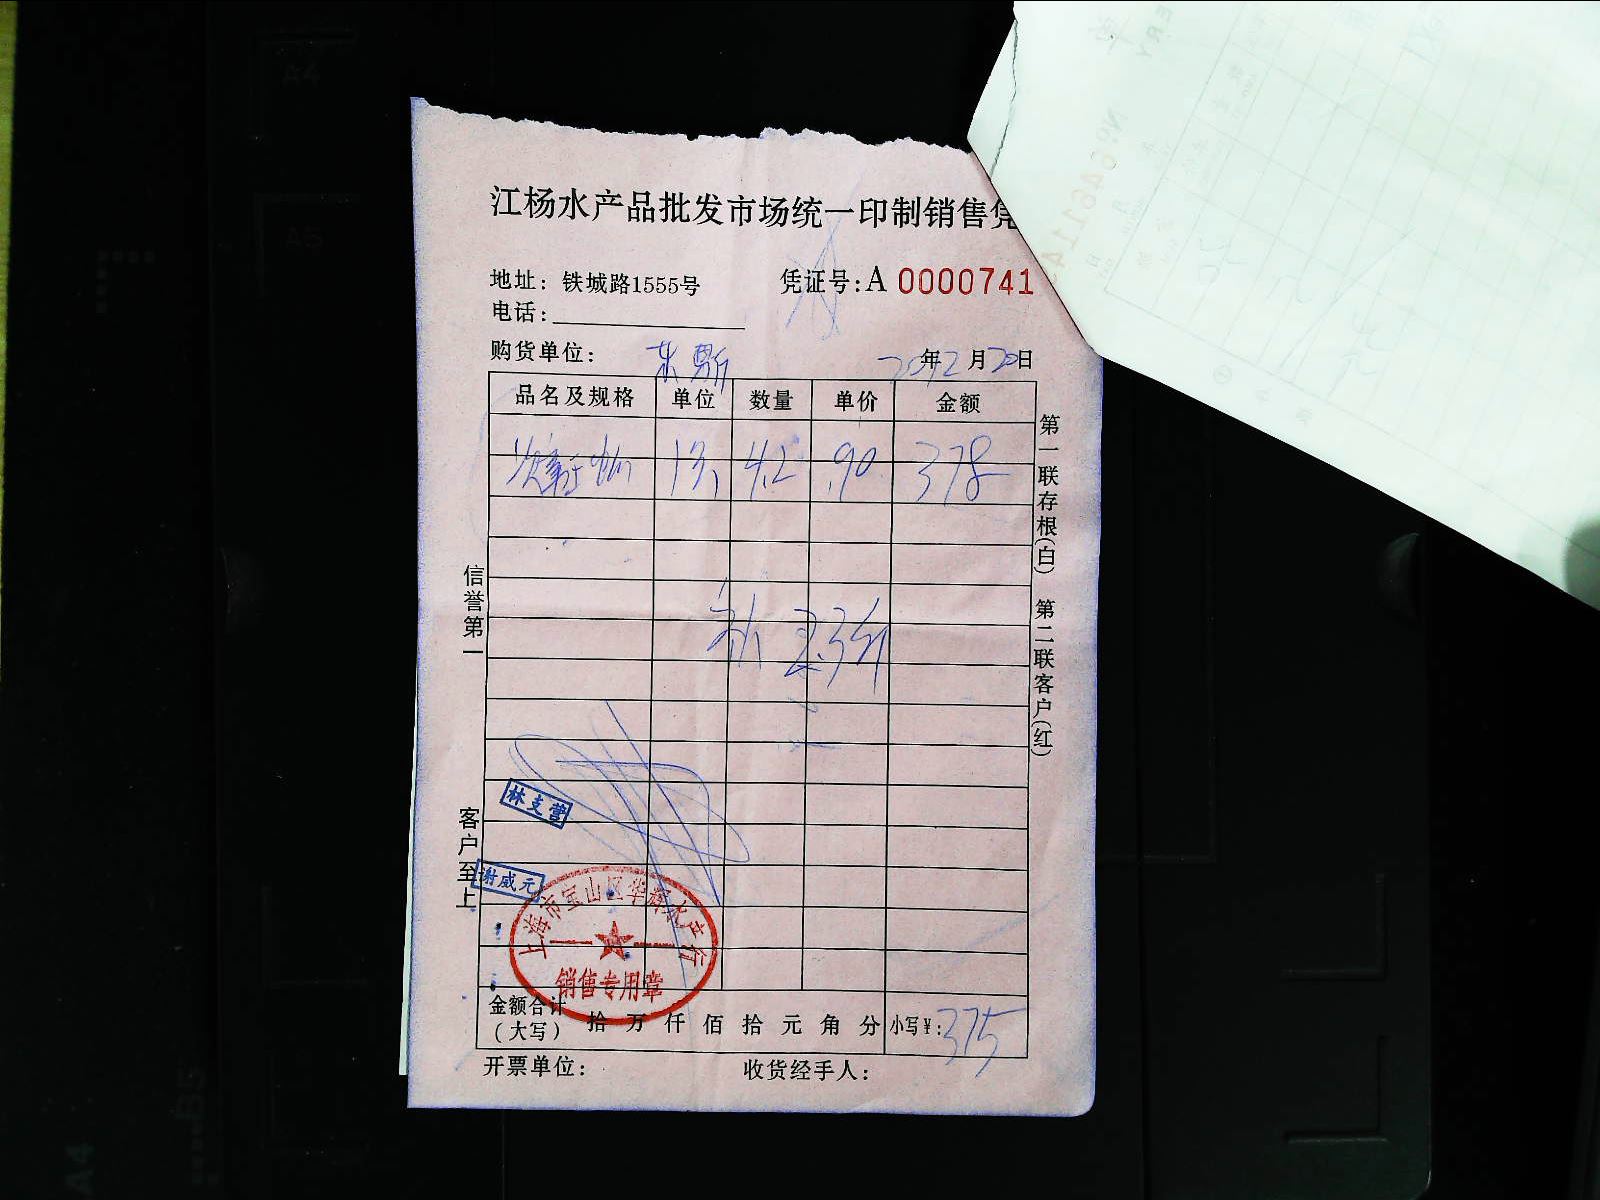 江杨水产品批发市场统一印制销售凭
地址：铁城路1555号
凭证号：A 0000741
电话：
购货单位：
年2月20日
品名及规格 单位 数量 单价 金额
4.2 90 378
信誉第一
客户至上
第一联存根(白) 第二联客户(红)
林支营
谢威元
上海市宝山区华辉水产行
销售专用章
金额合计
（大写） 拾 万 仟 佰 拾 元 角 分 小写￥：375
开票单位：
收货经手人：
A4
A5
B5
A4